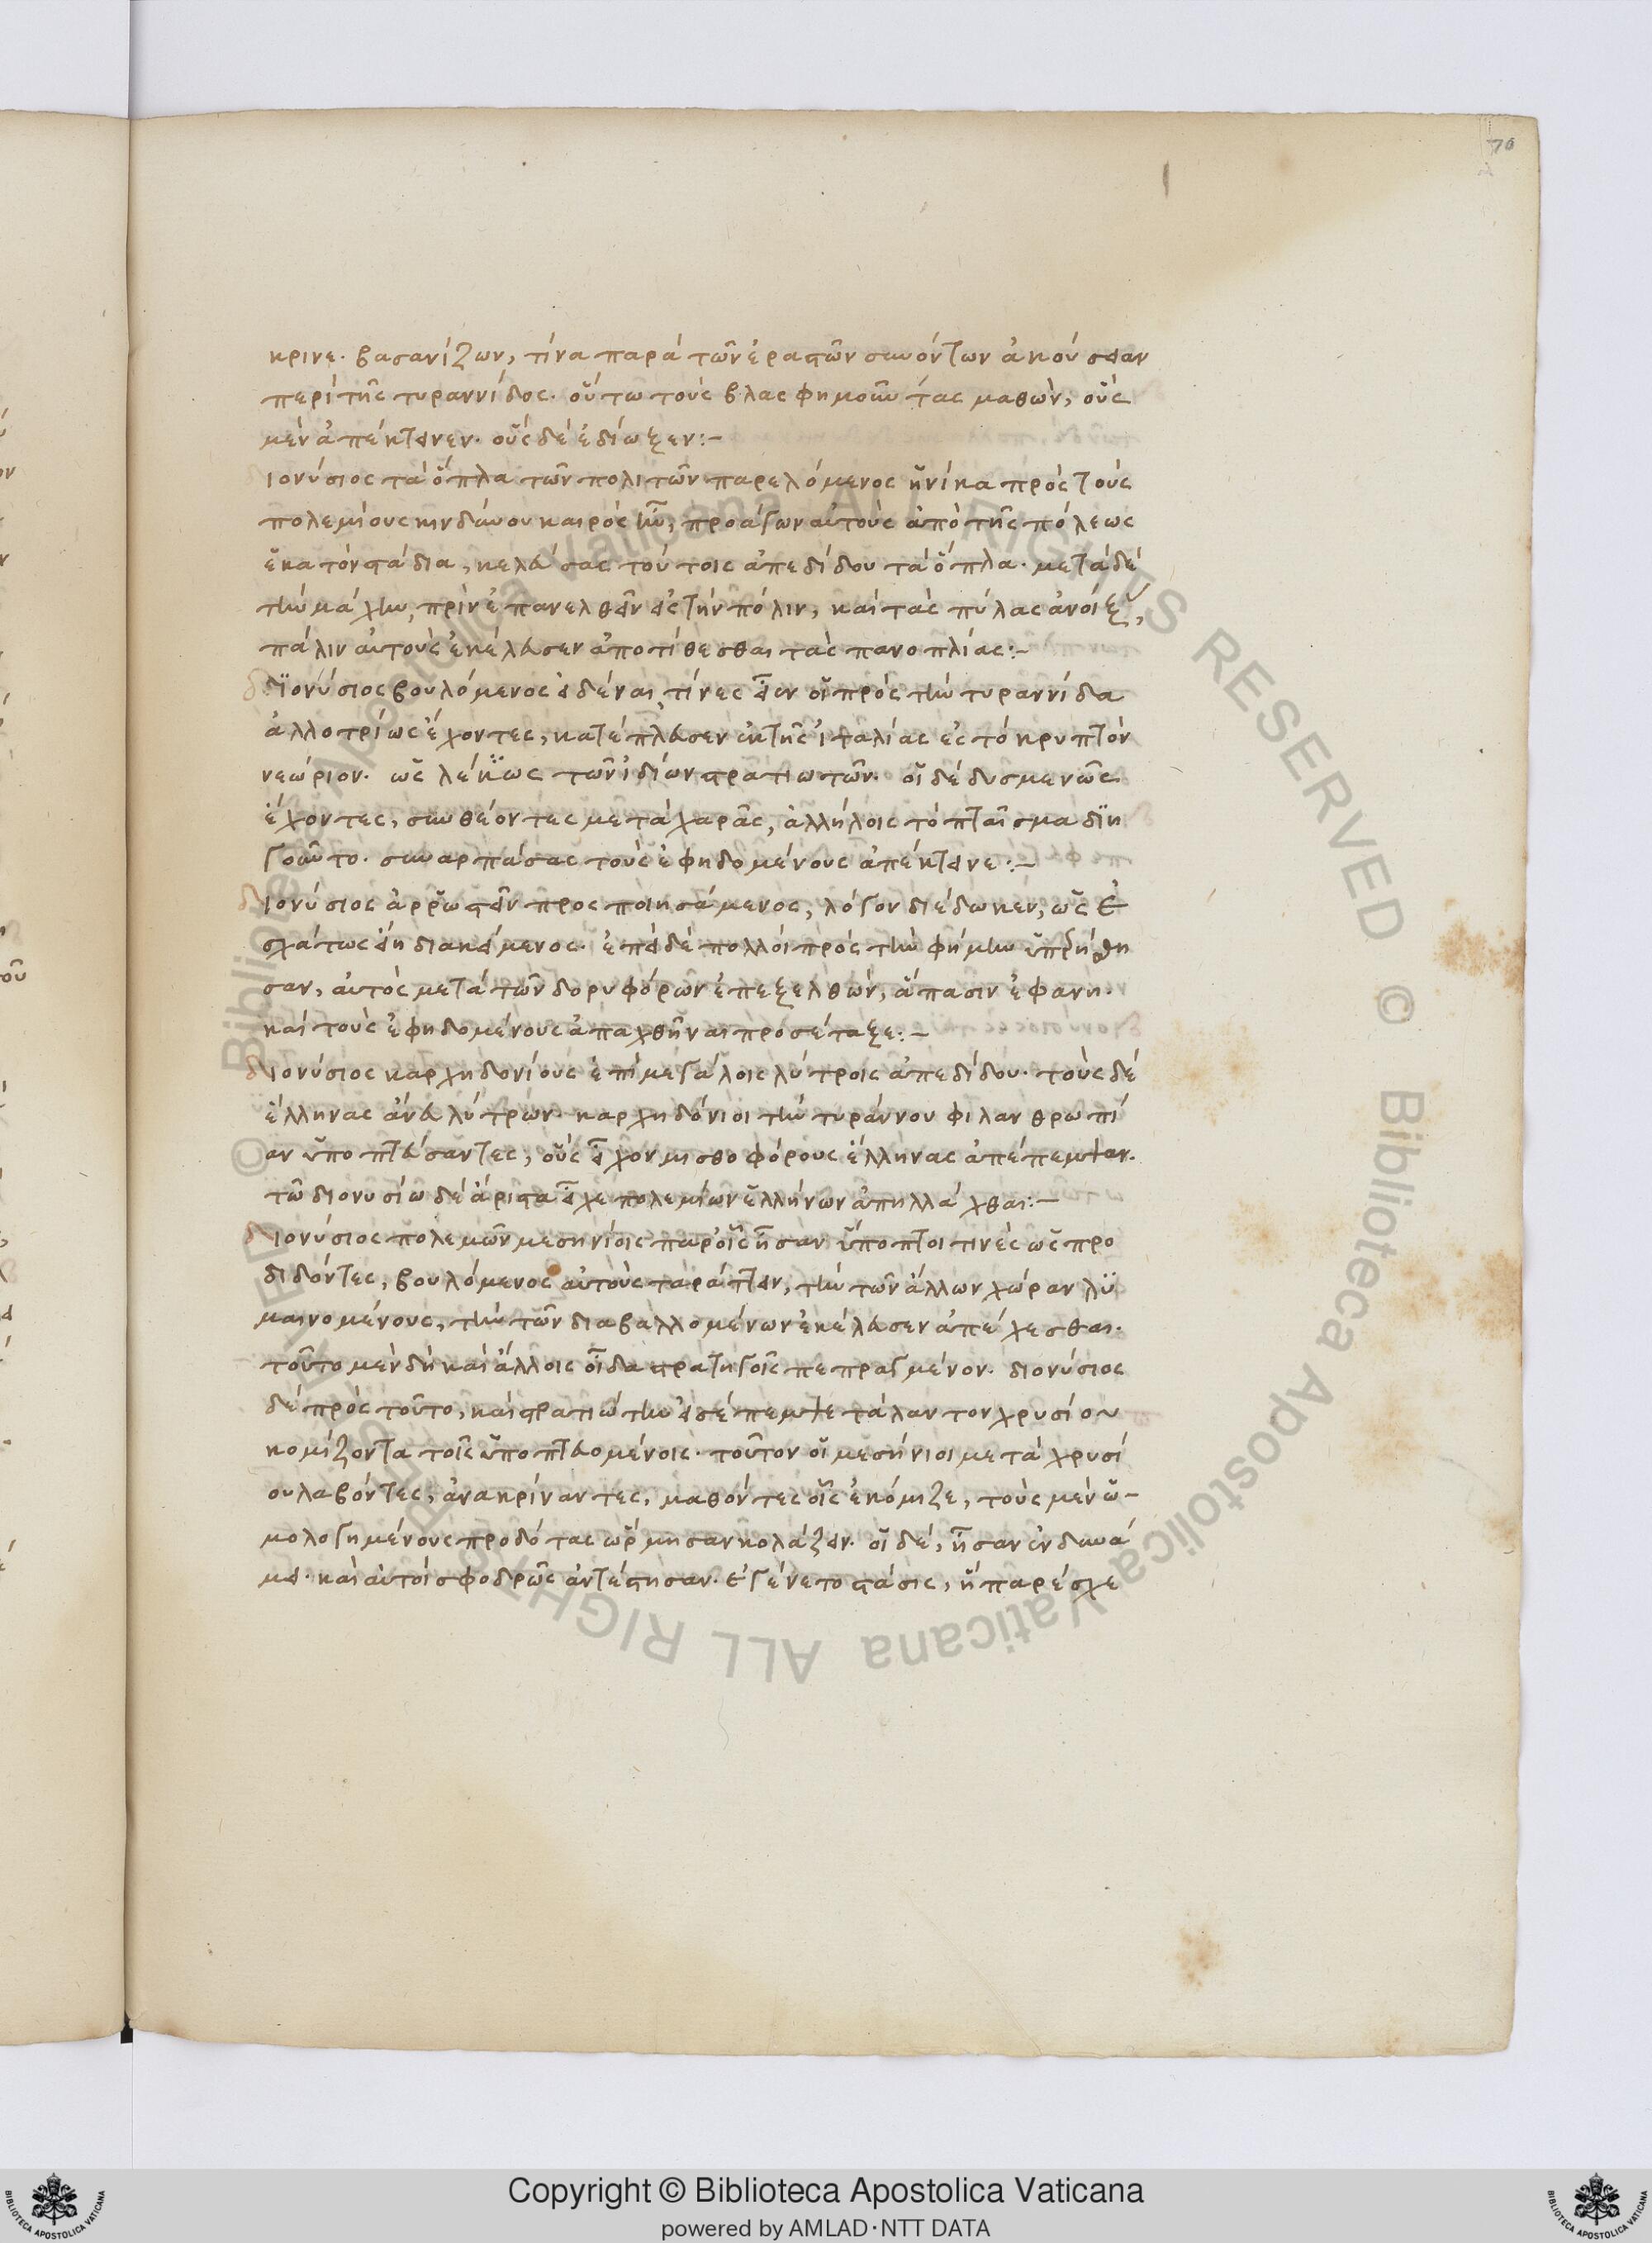 70
κρινε. βασανίζων, τίνα παρὰ τῶν ἐραστῶν συνόντων ἀκούσειαν
περὶ τῆς τυραννίδος. οὕτω τοὺς βλασφημοῦντας μαθὼν, οὓς
μὲν ἀπέκτεινεν. οὓς δὲ ἐδίωξεν:-
ιονύσιος τὰ ὅπλα τῶν πολιτῶν παρελόμενος ἡνίκα πρὸς τοὺς
πολεμίους κινδύνου καιρὸς ἦν, προάγων αὐτοὺς ἀπὸ τῆς πόλεως
ἑκατὸν στάδια, κελεύσας τούτοις ἀπεδίδου τὰ ὅπλα. μετὰ δὲ
τὴν μάχην, πρὶν ἐπανελθεῖν εἰς τὴν πόλιν, καὶ τὰς πύλας ἀνοῖξ,
πάλιν αὐτοὺς ἐκέλευσεν ἀποτίθεσθαι τὰς πανοπλίας:-
διονύσιος βουλόμενος εἰδέναι τίνες εἶεν οἱ πρὸς τὴν τυραννίδα
ἀλλοτρίως ἔχοντες, κατέπλευσεν ἐκ τῆς ἰταλίας ἐς τὸ κρυπτὸν
νεώριον. τῶν ἰδίων στρατιωτῶν. οἱ δὲ δυσμενῶς
ἔχοντες, συνθέοντες μετὰ χαρᾶς, ἀλλήλοις τὸ πταῖσμα διη
γοῦντο. συναρπάσας τοὺς ἐφηδομένους ἀπέκτεινε:-
διονύσιος ἀρρωστεῖν προσποιησάμενος, λόγον διέδωκεν, ὡς ἐ
σχάτως εἴη διακείμενος. ἐπεὶ δὲ πολλοὶ πρὸς τὴν φήμην ὑπρήσθη
σαν, αὐτὸς μετὰ τῶν δορυφόρων ἐπεξελθὼν, ἅπασιν ἐφάνη.
καὶ τοὺς ἐφηδομένους ἀπαχθῆναι προσέταξε:-
διονύσιος καρχηδονίους ἐπὶ μεγάλοις λύτροις ἀπεδίδου. τοὺς δὲ
ἕλληνας ἄνευ λύτρων. καρχηδόνιοι τὴν τυράννου φιλανθρωπί
αν ὑποπτεύσαντες, οὓς εἶχον μισθοφόρους ἕλληνας ἀπέπεμψαν.
τῶ διονυσίω δὲ ἄριστα εἶχε πολεμίων ἑλλήνων ἀπηλλάχθαι:-
διονύσιος πολεμῶν μεσηνίοις παρ' οἷς ἦσαν ὕποπτοι τινὲς ὡς προ
διδόντες, βουλόμενος αὐτοὺς ταράττειν, τὴν τῶν ἄλλων χώραν λυ
μαινομένους, τὴν τῶν διαβαλλομένων ἐκέλευσεν ἀπέχεσθαι.
τοῦτο μὲν δὴ καὶ ἄλλοις οἶδα στρατηγοῖς πεπραγμένον. διονύσιος
δὲ πρὸς τοῦτο, καὶ στρατιώτην εἰσέπεμψε τάλαντον χρυσίου
κομίζοντα τοῖς ὑποπτευομένοις. τοῦτον οἱ μεσήνιοι μετὰ χρυσί
ου λαβόντες, ἀνακρίναντες, μαθόντες οἷς ἐκόμιζε, τοὺς μὲν ὡ-
μολογημένους προδότας ὥρμησαν κολάζειν. οἱ δὲ, ἦσαν ἐν δυνά
μει. καὶ αὐτοὶ σφοδρῶς ἀντέστησαν. ἐγένετο στάσις, ἣ παρέσχε
Copyright © Biblioteca Apostolica Vaticana
powered by AMLAD·NTT DATA